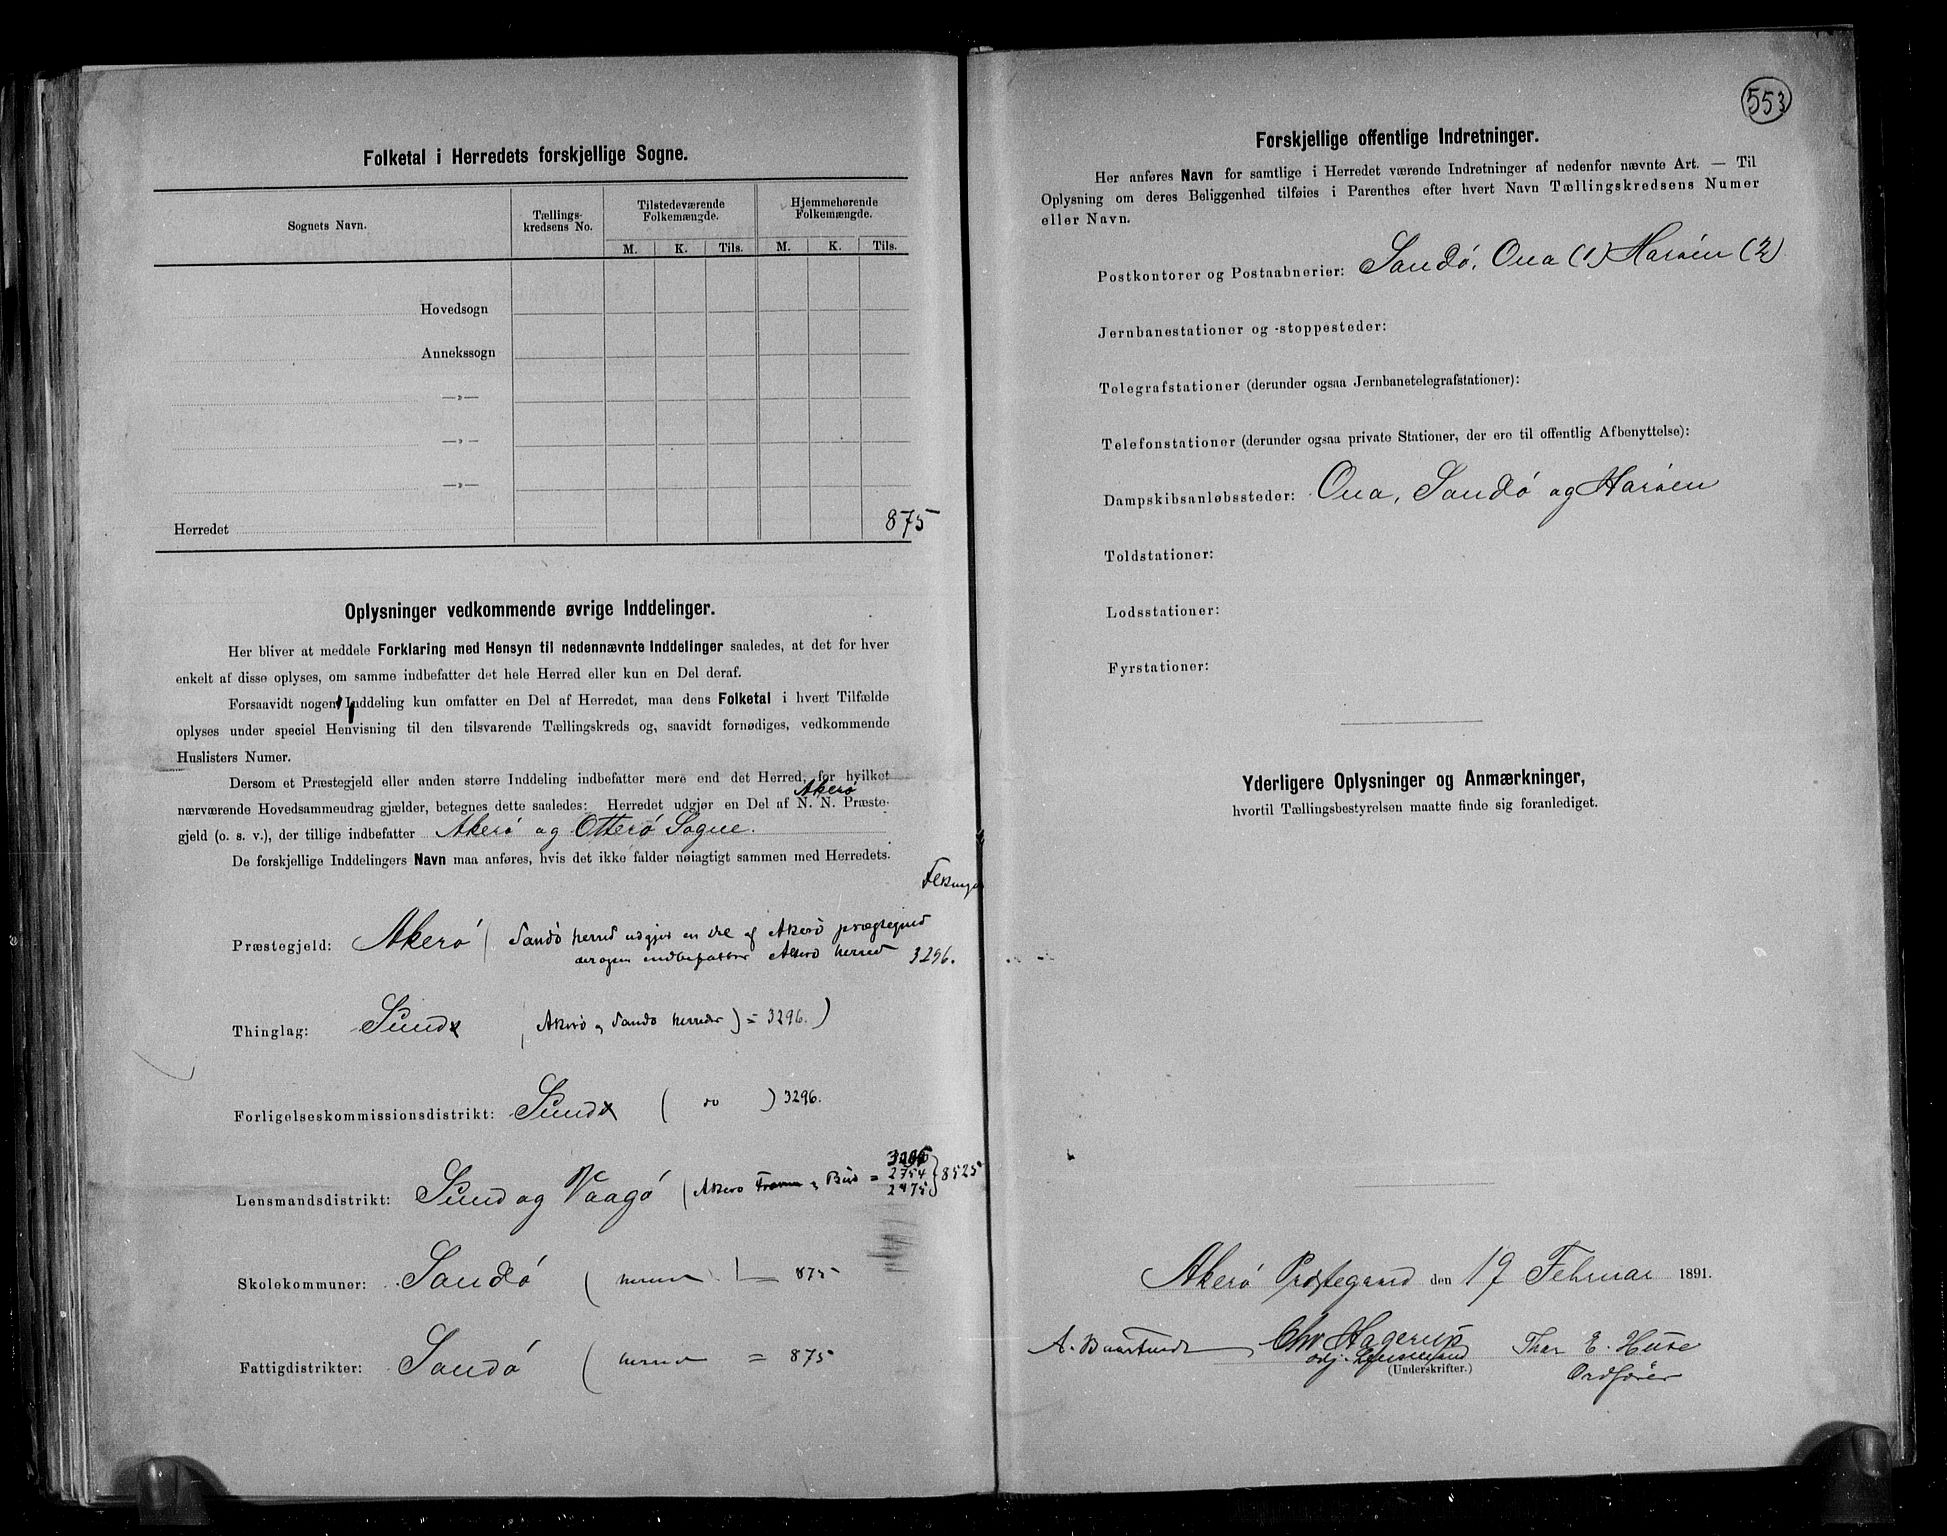 Folketal i Herredets forskjellige Sogne.
Sognets Navn.
Tællings-
kredsens No.
Tilstedeværende
Folkemængde.
Hjemmehørende
Folkemængde.
M. K. Tils. M. K. Tils.
Hovedsogn
Annekssogn
—»—
—»—
—»—
Herredet 875
Oplysninger vedkommende øvrige Inddelinger.
Her bliver at meddele Forklaring med Hensyn til nedennævnte Inddelinger saaledes, at det for hver
enkelt af disse oplyses, om samme indbefatter det hele Herred eller kun en Del deraf.
Forsaavidt nogen Inddeling kun omfatter en Del af Herredet, maa dens Folketal i hvert Tilfælde
oplyses under speciel Henvisning til den tilsvarende Tællingskreds og, saavidt fornødiges, vedkommende
Huslisters Numer.
Dersom et Præstegjeld eller anden større Inddeling indbefatter mere end det Herred, for hvilket
Akerø
nærværende Hovedsammendrag gjælder, betegnes dette saaledes: Herredet udgjør en Del af N. N. Præste-
gjeld (o. s. v.), der tillige indbefatter Akerø og Otterø Sogne.
De forskjellige Inddelingers Navn maa anføres, hvis det ikke falder nøiagtigt sammen med Herredets.
Præstegjeld: Akerø ( Sandø herred udgjør en del af Akerø præstegjeld
indbefatter Akerø herred 3296.
Thinglag: Sund ( Akerø og Sandø herreder ) = 3296. )
Forligelseskommissionsdistrikt: Sund ( do ) 3296.
Lensmandsdistrikt: Sund og Vaagø ( Akerø Fræna og Bud = 3296
2754 } 8525
2475
Skolekommuner: Sandø ( herred ) — 875
Fattigdistrikter: Sandø ( herred = 875
553
Forskjellige offentlige Indretninger.
Her anføres Navn for samtlige i Herredet værende Indretninger af nedenfor nævnte Art. — Til
Oplysning om deres Beliggenhed tilføies i Parenthes efter hvert Navn Tællingskredsens Numer
eller Navn.
Postkontorer og Postaabnerier: Sandø, Ona (1) Harøen (2)
Jernbanestationer og -stoppesteder:
Telegrafstationer (derunder ogsaa Jernbanetelegrafstationer):
Telefonstationer (derunder ogsaa private Stationer, der ere til offentlig Afbenyttelse):
Dampskibsanløbssteder: Ona, Sandø og Harøen
Toldstationer:
Lodsstationer:
Fyrstationer:
Yderligere Oplysninger og Anmærkninger,
hvortil Tællingsbestyrelsen maatte finde sig foranlediget.
Akerø Præstegaard den 19 Februar 1891.
Chr Hagerup Thor E. Huse
Lensmand Ordfører
(Underskrifter.)